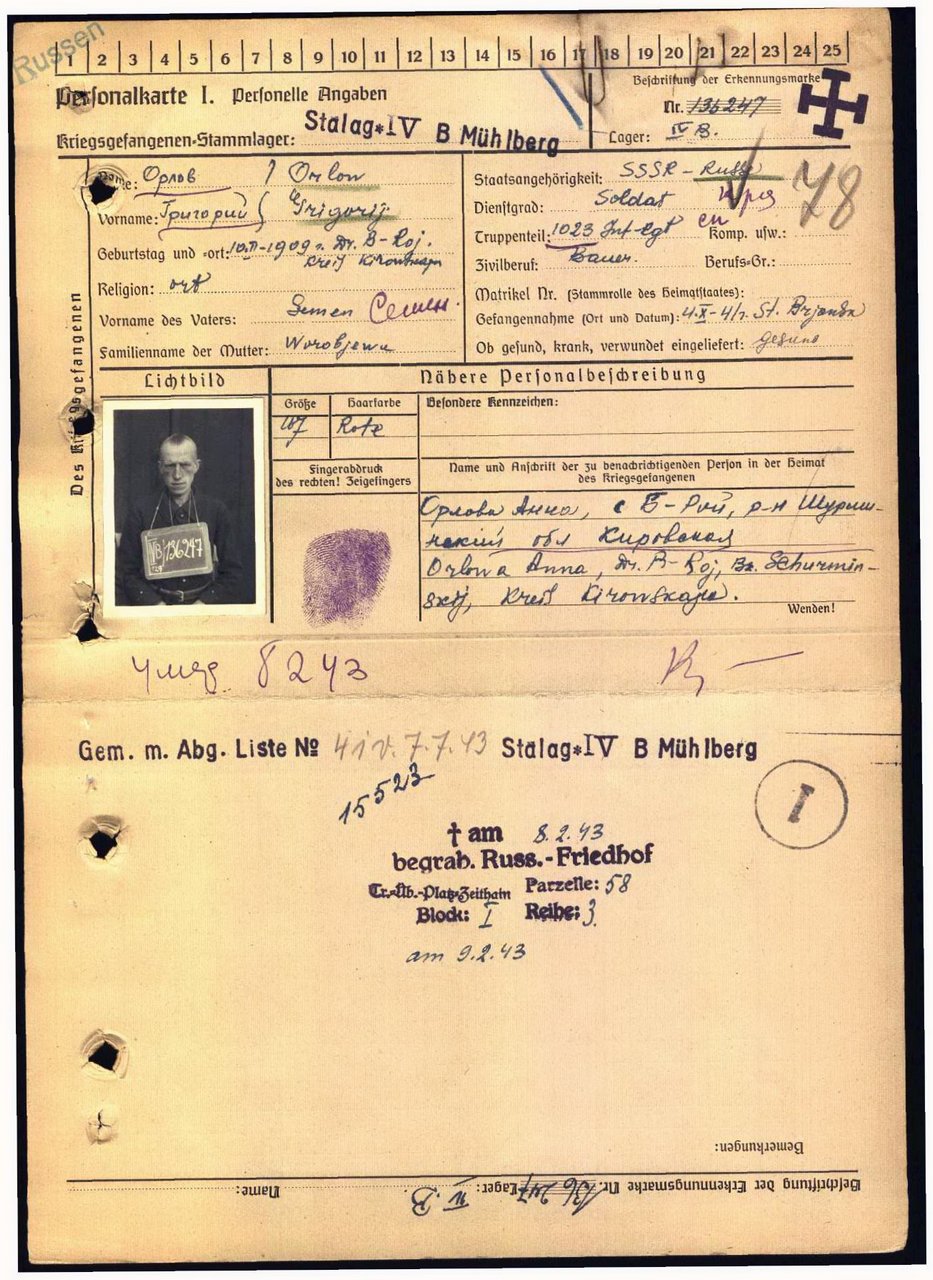 Russen
1 2 3 4 5 6 7 8 9 10 11 12 13 14 15 16 17 18 19 20 21 22 23 24 25
Personalkarte I. Personelle Angaben
Beschriftung der Erkennungsmarke
Nr. 136247
Kriegsgefangenen-Stammlager: Stalag IV B Mühlberg
Lager: IV B.
Des Kriegsgefangenen
Name: Орлов / Orlow
Vorname: Григорий Grigorij
Geburtstag und -ort: 10.II-1909 г. Dr. B-Roj.
Kreis Kirowskaja
Religion: ort
Vorname des Vaters: Semen Семен.
Familienname der Mutter: Worobjewa
Staatsangehörigkeit: SSSR - Russe
Dienstgrad: Soldat
Truppenteil: 1023 Inf-Rgt Komp. usw.:
Zivilberuf: Bauer. Berufs-Gr.:
Matrikel Nr. (Stammrolle des Heimatstaates):
Gefangennahme (Ort und Datum): 4.X-41г. St. Brjansk
Ob gesund, krank, verwundet eingeliefert: Gesund
78
Lichtbild
Nähere Personalbeschreibung
Größe Haarfarbe Besondere Kennzeichen:
167 Rote
Fingerabdruck
des rechten! Zeigefingers
Name und Anschrift der zu benachrichtigenden Person in der Heimat
des Kriegsgefangenen
Орлова Анна, с Б-Рой, р-н Шурмин-
ский обл Кировская
Orlowa Anna, Dr. B-Roj, Bz. Schurmin-
skij, Kreis Kirowskaja.
Wenden!
IVB 136247
8 2 43
Gem. m. Abg. Liste No 41 v. 7.7.43 Stalag IV B Mühlberg
15523
I
† am 8.2.43
begrab. Russ.-Friedhof
Tr.-Üb.-Platz-Zeithain Parzelle: 58
Block: I Reihe: 3.
am 9.2.43
Bemerkungen:
Beschriftung der Erkennungsmarke Nr. 136247 Lager: IV B Name: